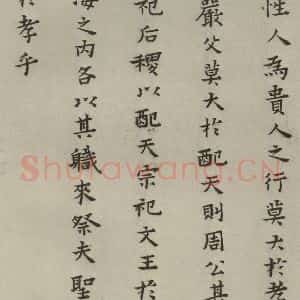 性人為貴人之行莫大於孝
嚴父莫大於配天則周公其
祀后稷以配天宗祀文王於
海之内各以其職來祭夫聖
於孝乎
Shufawang.CN